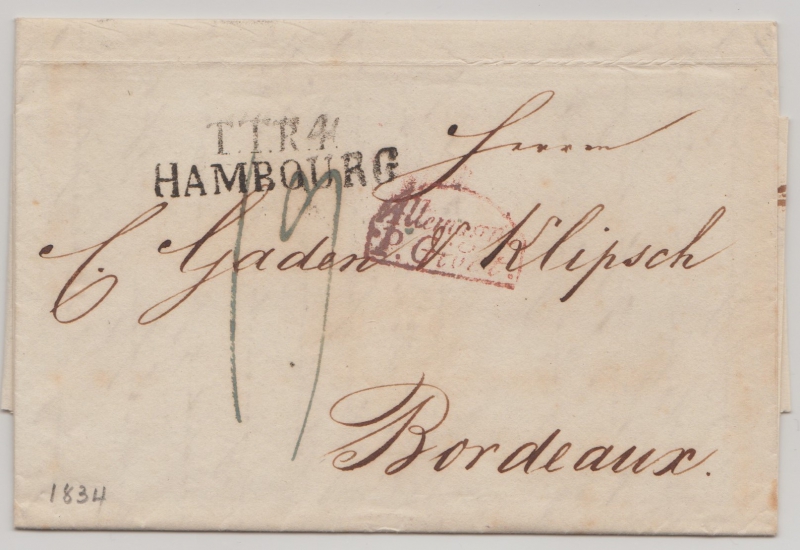 T.T.R.4.
HAMBOURG
Herren
Allemagne
P. Givet.
C. Gaden & Klipsch
19
Bordeaux.
1834